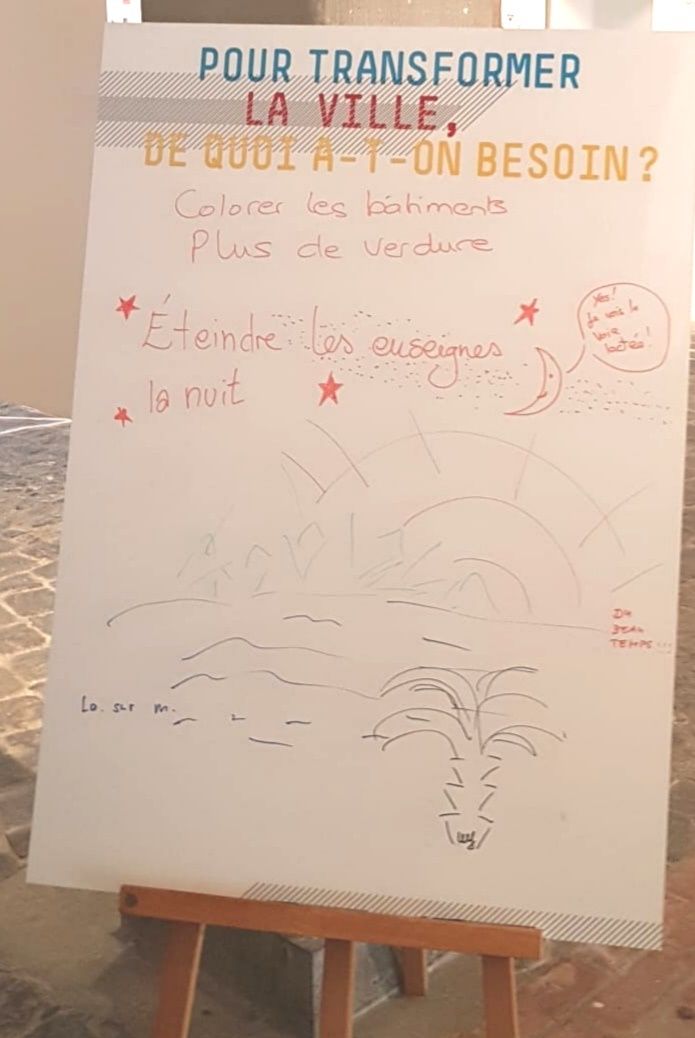 POUR TRANSFORMER
LA VILLE,
DE QUOI A-T-ON BESOIN?
Colorer les bâtiments
Plus de verdure
Éteindre les enseignes
la nuit
Yes!
Je vois la
voie
lactée!
DU
BEAU
TEMPS...
La. sur m.